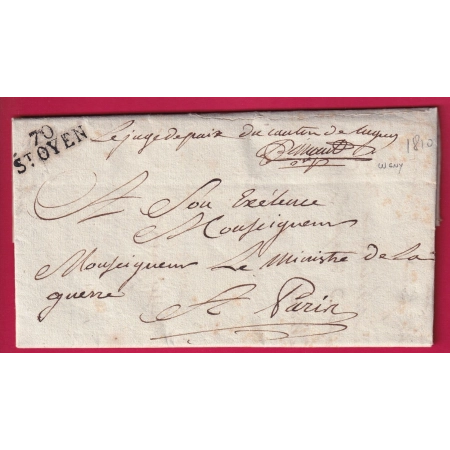 70
ST. OYEN
Le juge de paix du canton de lugny
1810
LUGNY
A Son Exélence
Monseigneur
Monseigneur Le Ministre de La
guerre
A Paris